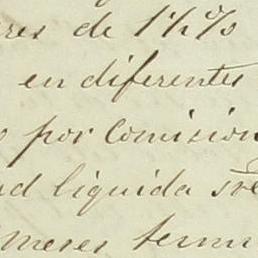 res de 1½%
en diferentes
por Comision
ad liquida
meses